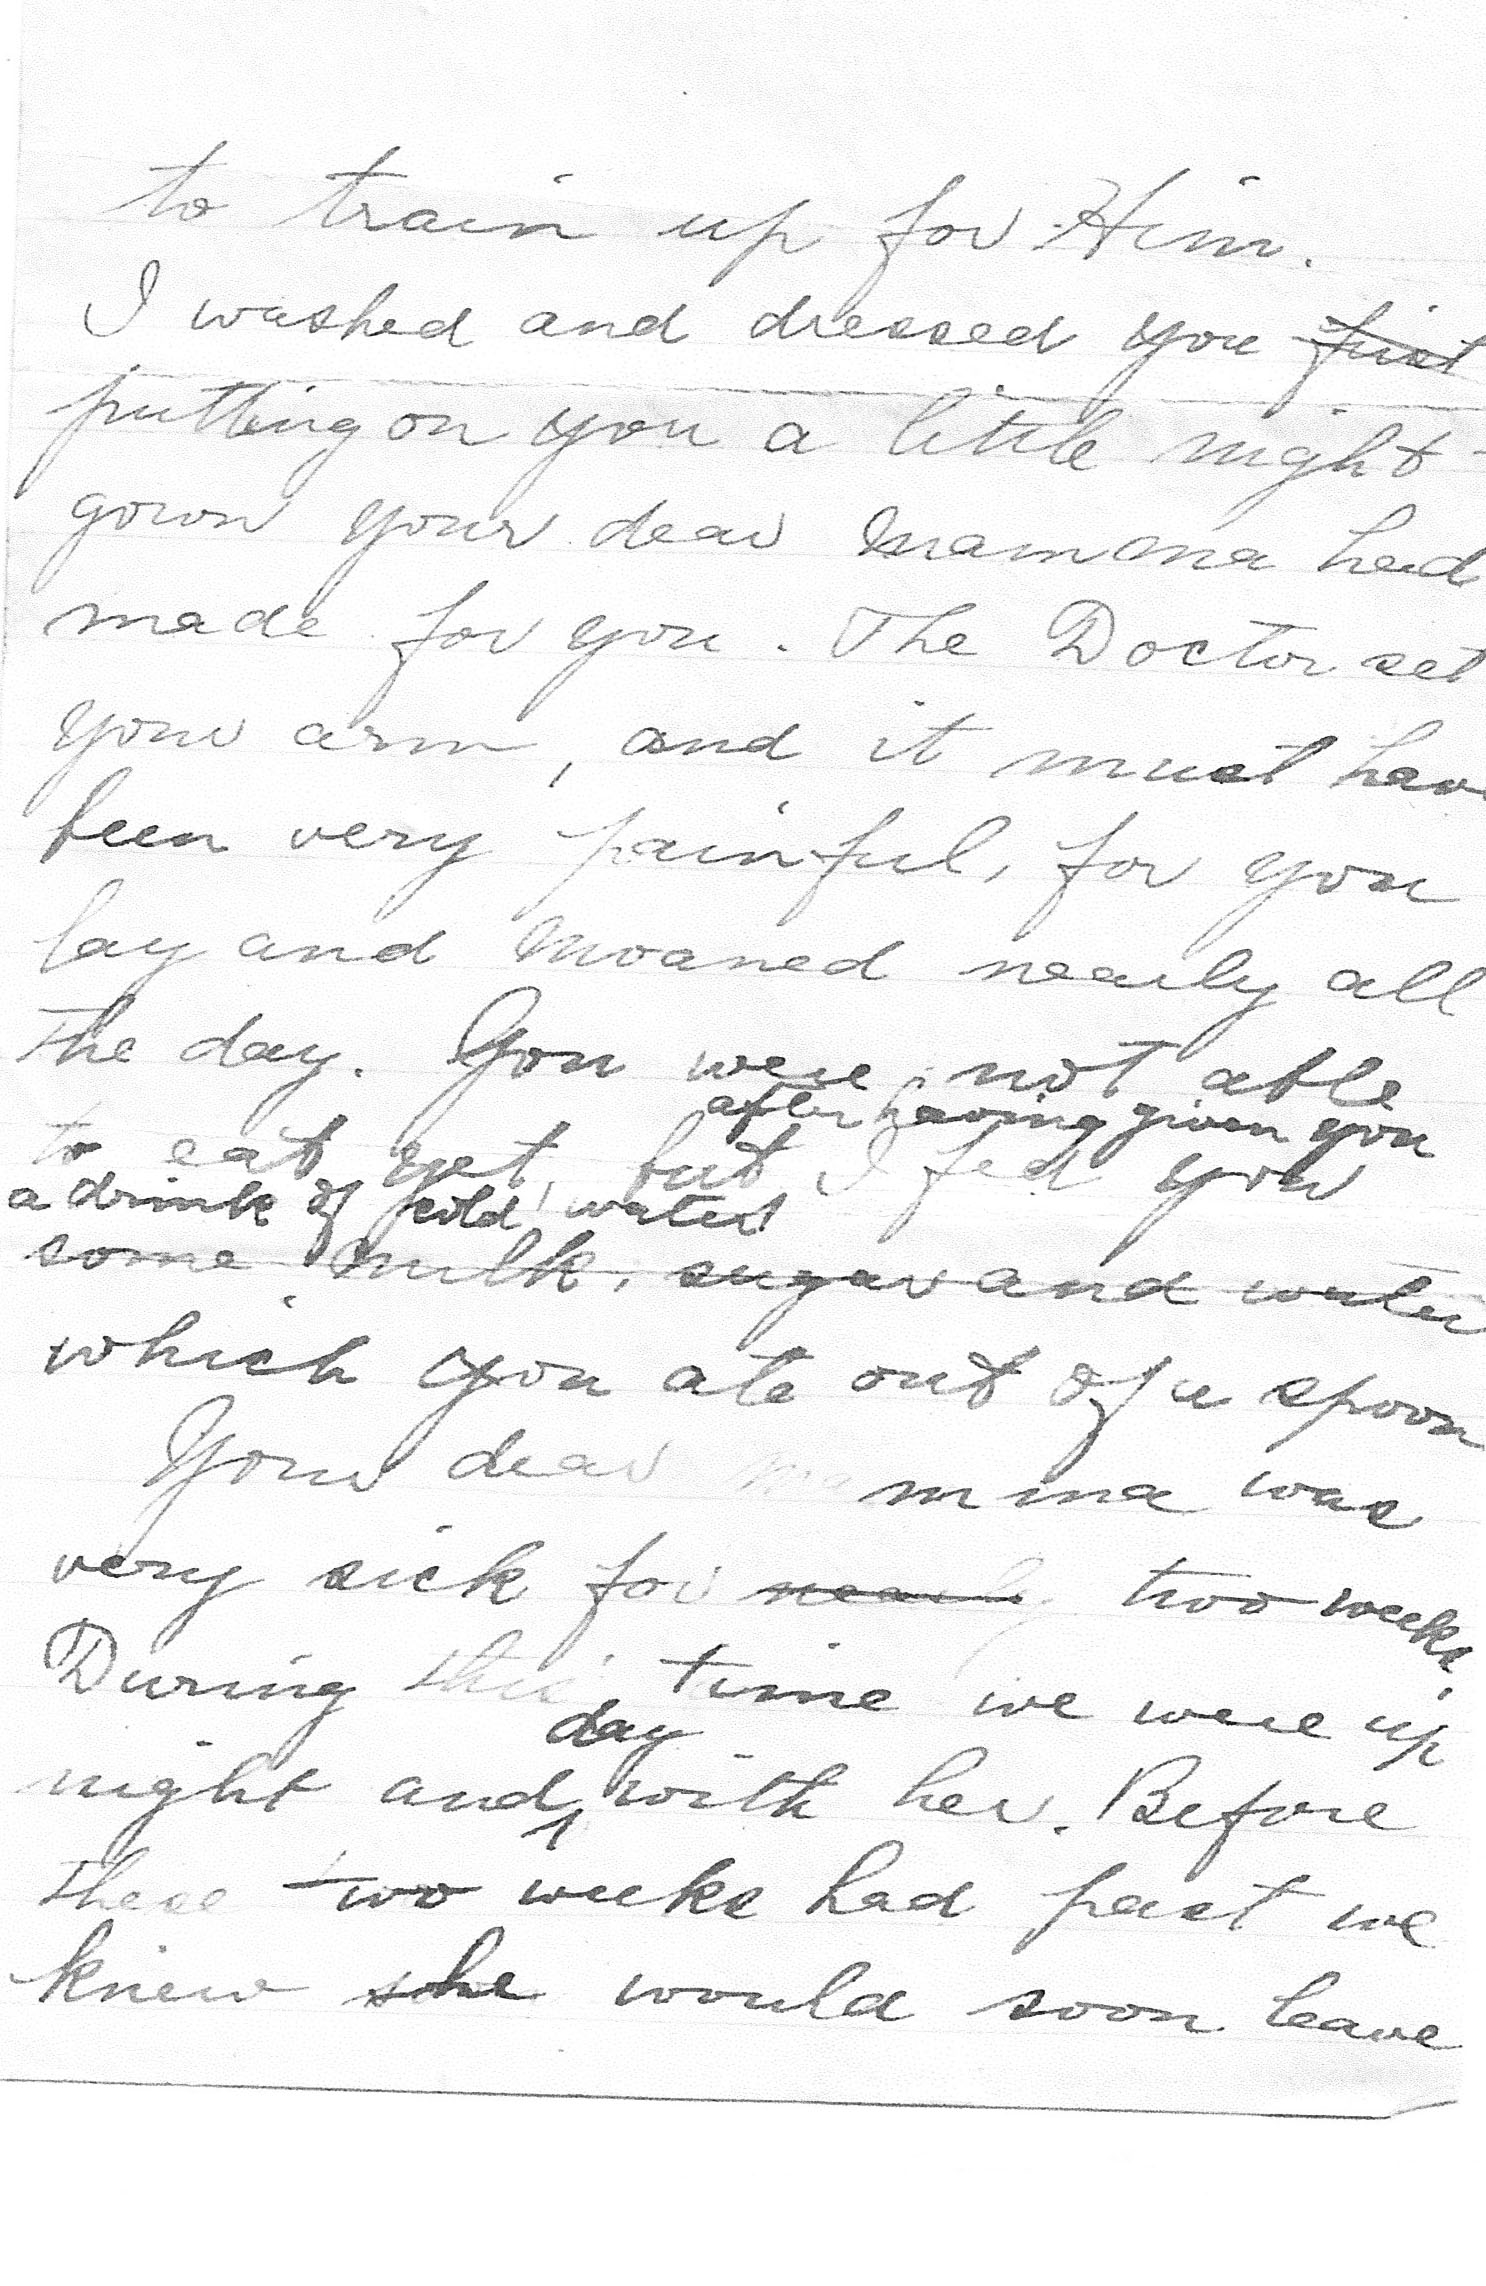 to train up for Him.
I washed and dressed you first
putting on you a little night-
gown your dear mamma had
made for you. The Doctor set
your arm, and it must have
been very painful, for you
lay and moaned nearly all
the day. You were not able
after having given you
to eat yet, but I fed you
a drink of cold water
some milk, sugar and water
which you ate out of a spoon
Your dear mamma was
very sick for nearly two weeks.
During this time we were up
day
night and with her. Before
these two weeks had past we
knew she would soon leave